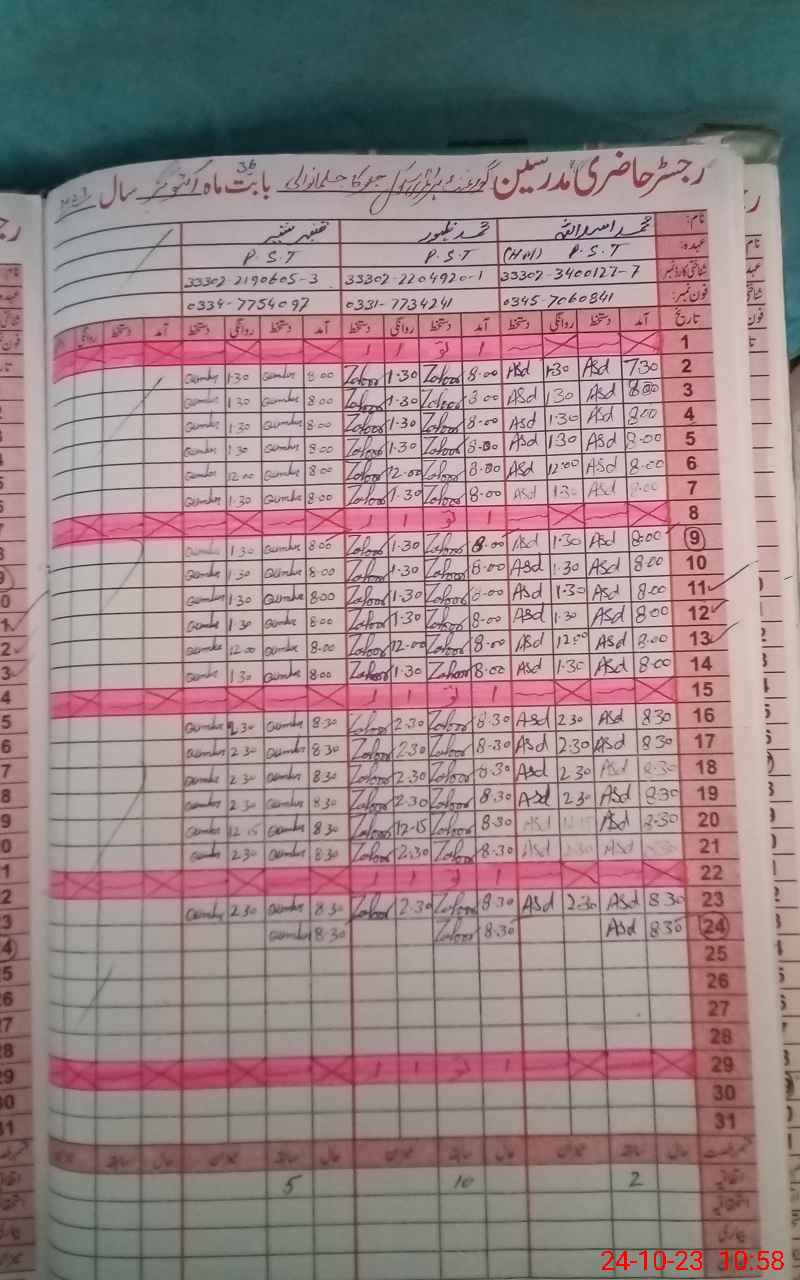 رجسٹر حاضری مدرسین گورنمنٹ بابت ماہ اکتوبر سال
36
نام: محمد اسد اللہ محمد ظہور قنبر
عہدہ: P.S.T (HM) P.S.T P.S.T
شناختی کارڈ نمبر 33302-3400127-7 33302-2204920-1 33302-2190605-3
فون نمبر: 0345-7060841 0331-7734241 0334-7754097
تاریخ آمد دستخط روانگی دستخط آمد دستخط روانگی دستخط آمد دستخط روانگی دستخط آمد دستخط روانگی
1 ا تو ا ر
2 7.30 Asd 1.30 Asd 8.00 Zahoor 1.30 Zahoor 8.00 Qumber 1.30 Qumber
3 8.00 Asd 1.30 Asd 8.00 Zahoor 1.30 Zahoor 8.00 Qumber 1.30 Qumber
4 8.00 Asd 1.30 Asd 8.00 Zahoor 1.30 Zahoor 8.00 Qumber 1.30 Qumber
5 8.00 Asd 1.30 Asd 8.00 Zahoor 1.30 Zahoor 8.00 Qumber 1.30 Qumber
6 8.00 Asd 12.00 Asd 8.00 Zahoor 12.00 Zahoor 8.00 Qumber 12.00 Qumber
7 8.00 Asd 1.30 Asd 8.00 Zahoor 1.30 Zahoor 8.00 Qumber 1.30 Qumber
8 ا تو ا ر
9 8.00 Asd 1.30 Asd 8.00 Zahoor 1.30 Zahoor 8.00 Qumber 1.30 Qumber
10 8.00 Asd 1.30 Asd 8.00 Zahoor 1.30 Zahoor 8.00 Qumber 1.30 Qumber
11 8.00 Asd 1.30 Asd 8.00 Zahoor 1.30 Zahoor 8.00 Qumber 1.30 Qumber
12 8.00 Asd 1.30 Asd 8.00 Zahoor 1.30 Zahoor 8.00 Qumber 1.30 Qumber
13 8.00 Asd 12.00 Asd 8.00 Zahoor 12.00 Zahoor 8.00 Qumber 12.00 Qumber
14 8.00 Asd 1.30 Asd 8.00 Zahoor 1.30 Zahoor 8.00 Qumber 1.30 Qumber
15 ا تو ا ر
16 8.30 Asd 2.30 Asd 8.30 Zahoor 2.30 Zahoor 8.30 Qumber 2.30 Qumber
17 8.30 Asd 2.30 Asd 8.30 Zahoor 2.30 Zahoor 8.30 Qumber 2.30 Qumber
18 8.30 Asd 2.30 Asd 8.30 Zahoor 2.30 Zahoor 8.30 Qumber 2.30 Qumber
19 8.30 Asd 2.30 Asd 8.30 Zahoor 2.30 Zahoor 8.30 Qumber 2.30 Qumber
20 8.30 Asd 12.15 Asd 8.30 Zahoor 12.15 Zahoor 8.30 Qumber 12.15 Qumber
21 8.30 Asd 2.30 Asd 8.30 Zahoor 2.30 Zahoor 8.30 Qumber 2.30 Qumber
22 ا تو ا ر
23 8.30 Asd 2.30 Asd 8.30 Zahoor 2.30 Zahoor 8.30 Qumber 2.30 Qumber
24 8.30 Asd 8.30 Zahoor 8.30 Qumber
25
26
27
28
29 ا تو ا ر
30
31
2 10 5
24-10-23 10:58